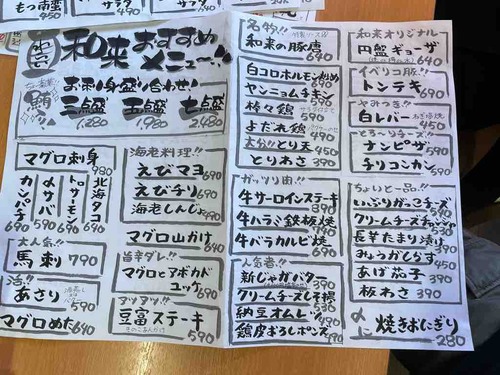 もつ南蛮
450
サラダ
サラダ
和来おすすめ
メニュー!!
お刺身盛り合わせ!
三点盛
五点盛
七点盛
1,280
1,980
2,480
マグロ刺身
980
カンパチ 690
〆サバ 590
トロサーモン 690
北海タコ 640
大人気!!
馬刺 790
活!!
あさり
590
マグロめだ 640
海老料理!!
えびマヨ 690
えびチリ 690
海老しんじょ 490
マグロ山かけ 640
旨辛ダレ!!
マグロとアボカド
ユッケ 690
アツアツ!!
豆富ステーキ
きのこあんかけ 590
名物!!
和来の豚唐
640
白コロホルモン炒め
640
ヤンニョムチキン
590
棒々鶏
590
よだれ鶏
490
大分!!とり天 450
とりわさ 390
ガッツリ肉!!
牛サーロインステーキ
890
牛ハラミ鉄板焼
790
牛バラカルビ焼
690
人気者!!
新じゃがバター 390
クリームチーズ味噌 390
納豆オムレツ 490
鶏皮おろしポンズ 390
和来オリジナル
円盤ギョーザ
640
イベリコ豚!!
トンテキ 640
やみつき!!
白レバー
450
とろ〜りチーズ!!
ナンピザ 590
チリコンカン 590
ちょいと一品!!
いぶりがっこチーズ 490
クリームチーズチャンジャ 590
長芋たまり漬け 390
みょうがくらす 450
あげ茄子 390
板わさ 390
〆に 焼きおにぎり
280